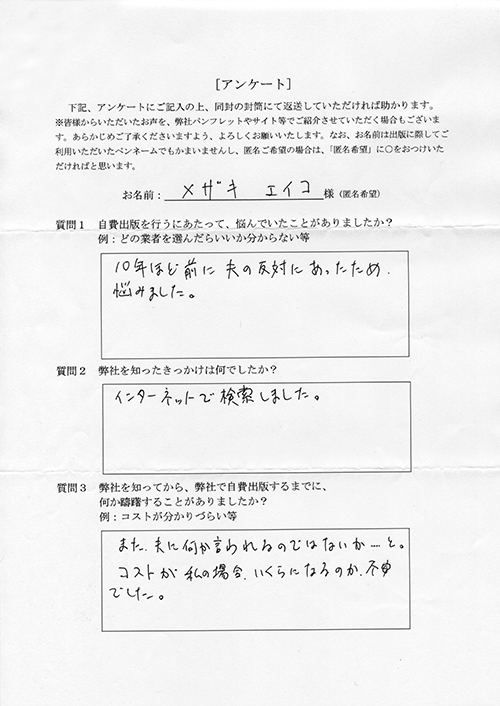 ［アンケート］
下記、アンケートにご記入の上、同封の封筒にて返送していただければ助かります。
※皆様からいただいたお声を、弊社パンフレットやサイト等でご紹介させていただく場合もございま
す。あらかじめご了承くださいますよう、よろしくお願いいたします。なお、お名前は出版に際してご
利用いただいたペンネームでもかまいませんし、匿名ご希望の場合は、「匿名希望」に○をおつけいた
だければと思います。
お名前： メザキ エイコ 様（匿名希望）
質問１ 自費出版を行うにあたって、悩んでいたことがありましたか？
例：どの業者を選んだらいいか分からない等
10年ほど前に夫の反対にあったため、
悩みました。
質問２ 弊社を知ったきっかけは何でしたか？
インターネットで検索しました。
質問３ 弊社を知ってから、弊社で自費出版するまでに、
何か躊躇することがありましたか？
例：コストが分かりづらい等
また、夫に何か言われるのではないか……と。
コストが私の場合、いくらになるのか、不
でした。